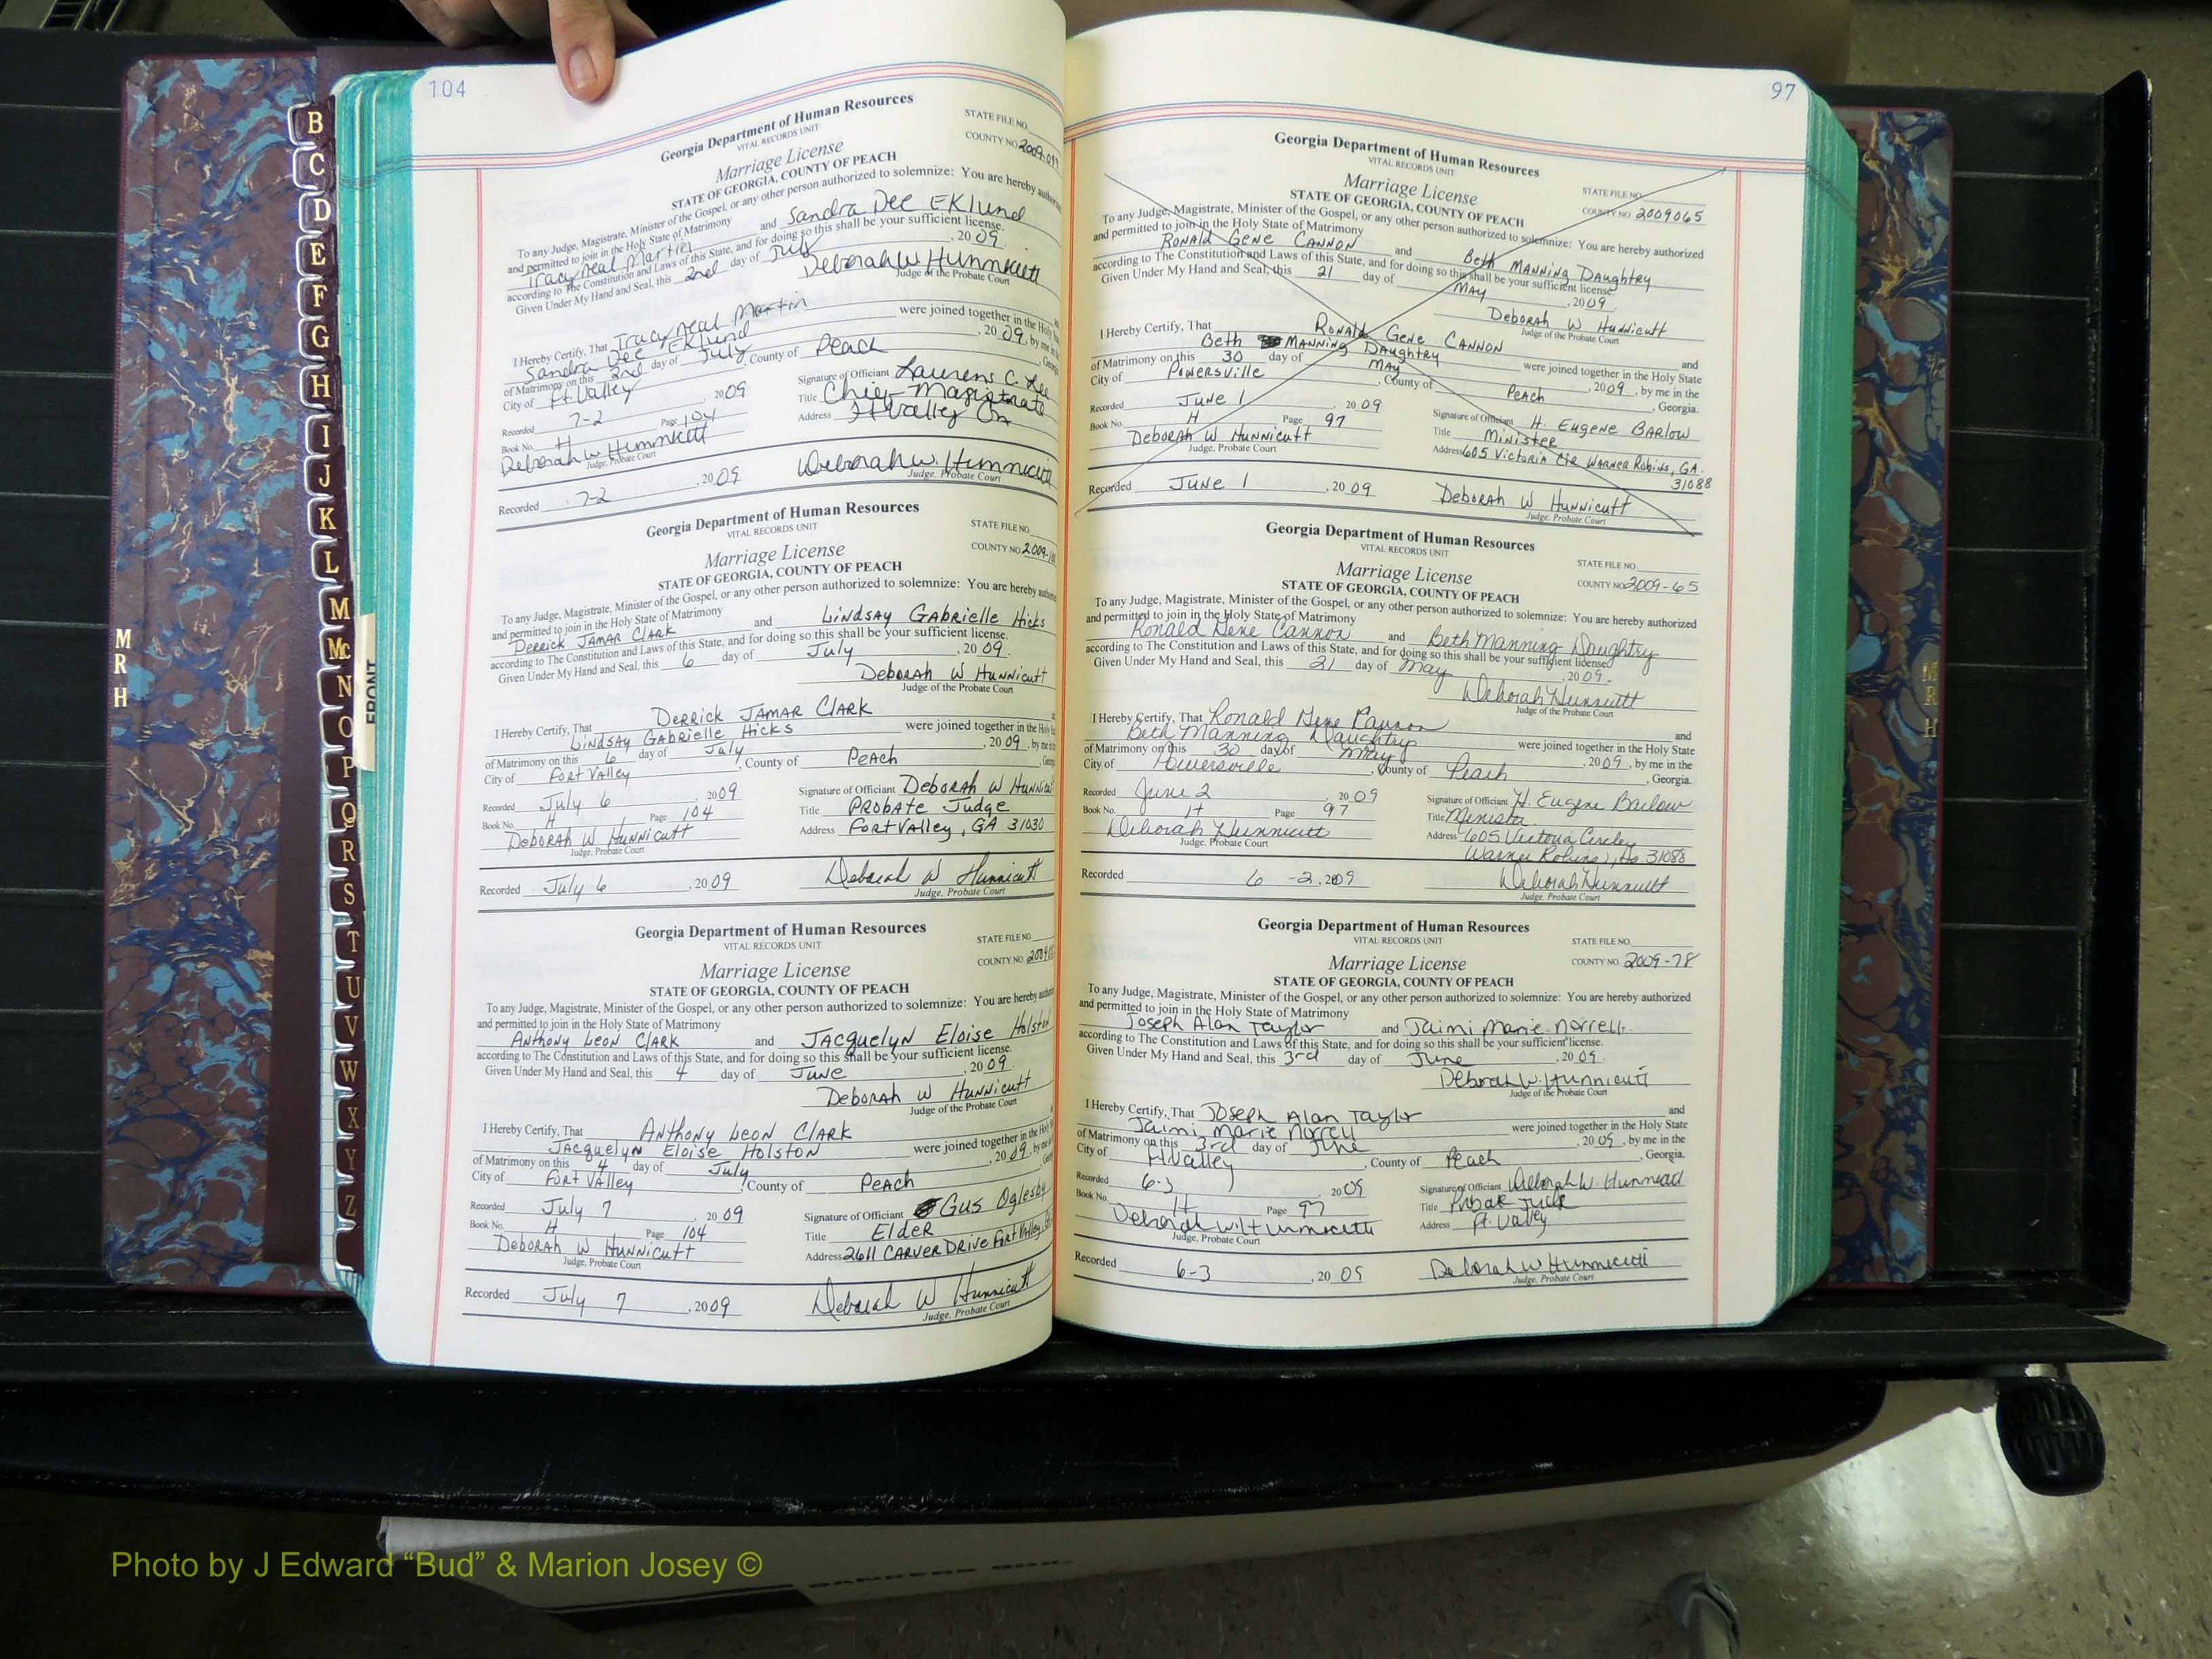 104
Georgia Department of Human Resources
VITAL RECORDS UNIT
STATE FILE NO.
Marriage License
COUNTY NO.
STATE OF GEORGIA, COUNTY OF PEACH
To any Judge, Magistrate, Minister of the Gospel, or any other person authorized to solemnize: You are hereby
and permitted to join in the Holy State of Matrimony
Tracy Neal Martin and Sandra Dee Eklund
according to The Constitution and Laws of this State, and for doing so this shall be your sufficient license.
Given Under My Hand and Seal, this 2nd day of July, 2009.
Deborah W Hunnicutt
Judge of the Probate Court
I Hereby Certify, That Tracy Neal Martin
Sandra Dee Eklund were joined together in the Holy
of Matrimony on this 2nd day of July, 2009, by me
City of Ft Valley, County of Peach
Recorded 7-2 2009 Signature of Officiant Laurens C. Lee
Book No. H Page 104 Title Chief Magistrate
Deborah W Hunnicutt Address Ft Valley Ga
Judge, Probate Court
Recorded 7-2, 2009 Deborah W. Hunnicutt
Judge, Probate Court
Georgia Department of Human Resources
VITAL RECORDS UNIT
STATE FILE NO.
Marriage License
COUNTY NO.
STATE OF GEORGIA, COUNTY OF PEACH
To any Judge, Magistrate, Minister of the Gospel, or any other person authorized to solemnize: You are hereby
and permitted to join in the Holy State of Matrimony
Derrick Jamar Clark and Lindsay Gabrielle Hicks
according to The Constitution and Laws of this State, and for doing so this shall be your sufficient license.
Given Under My Hand and Seal, this 6 day of July, 2009.
Deborah W Hunnicutt
Judge of the Probate Court
I Hereby Certify, That Derrick Jamar Clark
Lindsay Gabrielle Hicks were joined together in the Holy
of Matrimony on this 6 day of July, 2009, by me
City of Fort Valley, County of Peach
Recorded July 6 2009 Signature of Officiant Deborah W
Book No. H Page 104 Title Probate Judge
Deborah W Hunnicutt Address Fort Valley, GA 31030
Judge, Probate Court
Recorded July 6, 2009 Deborah W Hunnicutt
Judge, Probate Court
Georgia Department of Human Resources
VITAL RECORDS UNIT
STATE FILE NO.
Marriage License
COUNTY NO.
STATE OF GEORGIA, COUNTY OF PEACH
To any Judge, Magistrate, Minister of the Gospel, or any other person authorized to solemnize: You are hereby
and permitted to join in the Holy State of Matrimony
Anthony Leon Clark and Jacquelyn Eloise Holston
according to The Constitution and Laws of this State, and for doing so this shall be your sufficient license.
Given Under My Hand and Seal, this 4 day of June, 2009.
Deborah W Hunnicutt
Judge of the Probate Court
I Hereby Certify, That Anthony Leon Clark
Jacquelyn Eloise Holston were joined together in the Holy
of Matrimony on this 4 day of July, 2009, by me
City of Fort Valley, County of Peach
Recorded July 7 2009 Signature of Officiant Gus Oglesby
Book No. H Page 104 Title Elder
Deborah W Hunnicutt Address 2611 Carver Drive Fort Valley
Judge, Probate Court
Recorded July 7, 2009 Deborah W Hunnicutt
Judge, Probate Court
97
Georgia Department of Human Resources
VITAL RECORDS UNIT
STATE FILE NO.
Marriage License
COUNTY NO. 2009065
STATE OF GEORGIA, COUNTY OF PEACH
To any Judge, Magistrate, Minister of the Gospel, or any other person authorized to solemnize: You are hereby authorized
and permitted to join in the Holy State of Matrimony
Ronald Gene Cannon and Beth Manning Daughtry
according to The Constitution and Laws of this State, and for doing so this shall be your sufficient license.
Given Under My Hand and Seal, this 21 day of May, 2009
Deborah W Hunnicutt
Judge of the Probate Court
I Hereby Certify, That Ronald Gene Cannon and
Beth Manning Daughtry were joined together in the Holy State
of Matrimony on this 30 day of May, 2009, by me in the
City of Powersville, County of Peach, Georgia.
Recorded June 1 2009 Signature of Officiant H. Eugene Barlow
Book No. H Page 97 Title Minister
Deborah W Hunnicutt Address 605 Victoria Cir Warner Robins, GA.
Judge, Probate Court 31088
Recorded June 1, 2009 Deborah W Hunnicutt
Judge, Probate Court
Georgia Department of Human Resources
VITAL RECORDS UNIT
STATE FILE NO.
Marriage License
COUNTY NO. 2009-65
STATE OF GEORGIA, COUNTY OF PEACH
To any Judge, Magistrate, Minister of the Gospel, or any other person authorized to solemnize: You are hereby authorized
and permitted to join in the Holy State of Matrimony
Ronald Gene Cannon and Beth Manning Daughtry
according to The Constitution and Laws of this State, and for doing so this shall be your sufficient license.
Given Under My Hand and Seal, this 21 day of May, 2009.
Deborah Hunnicutt
Judge of the Probate Court
I Hereby Certify, That Ronald Gene Cannon and
Beth Manning Daughtry were joined together in the Holy State
of Matrimony on this 30 day of May, 2009, by me in the
City of Powersville, County of Peach, Georgia.
Recorded June 2 2009 Signature of Officiant H. Eugene Barlow
Book No. H Page 97 Title Minister
Deborah Hunnicutt Address 605 Victoria Circle
Judge, Probate Court Warner Robins, Ga. 31088
Recorded 6-2, 2009 Deborah Hunnicutt
Judge, Probate Court
Georgia Department of Human Resources
VITAL RECORDS UNIT
STATE FILE NO.
Marriage License
COUNTY NO. 2009-78
STATE OF GEORGIA, COUNTY OF PEACH
To any Judge, Magistrate, Minister of the Gospel, or any other person authorized to solemnize: You are hereby authorized
and permitted to join in the Holy State of Matrimony
Joseph Alan Taylor and Jaimi Marie Norrell
according to The Constitution and Laws of this State, and for doing so this shall be your sufficient license.
Given Under My Hand and Seal, this 3rd day of June, 2009.
Deborah W. Hunnicutt
Judge of the Probate Court
I Hereby Certify, That Joseph Alan Taylor and
Jaimi Marie Norrell were joined together in the Holy State
of Matrimony on this 3rd day of June, 2009, by me in the
City of Ft Valley, County of Peach, Georgia.
Recorded 6-3 2009 Signature of Officiant Deborah W. Hunnicutt
Book No. H Page 97 Title Probate Judge
Deborah W Hunnicutt Address Ft. Valley
Judge, Probate Court
Recorded 6-3, 2009 Deborah W Hunnicutt
Judge, Probate Court
B
C
D
E
F
G
H
I
J
K
L
M
Mc
N
O
P
Q
R
S
T
U
V
W
X
Y
Z
FRONT
M
R
H
M
R
H
Photo by J Edward “Bud” & Marion Josey ©